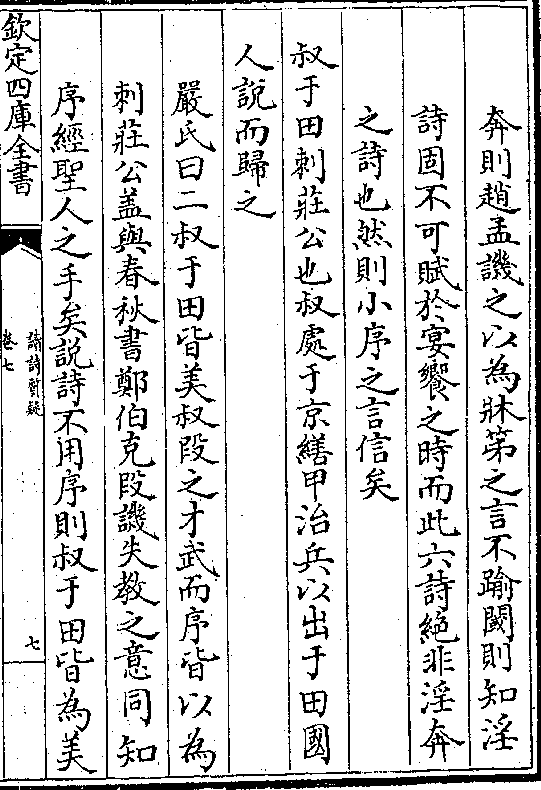 奔則趙孟譏之以為牀笫之言不踰閾則知淫
詩固不可賦於宴饗之時而此六詩絕非淫奔
之詩也然則小序之言信矣
叔于田刺莊公也叔處于京繕甲治兵以出于田國
人說而歸之
嚴氏曰二叔于田皆美叔段之才武而序皆以為
刺莊公蓋與春秋書鄭伯克段譏失教之意同知
序經聖人之手矣說詩不用序則叔于田皆為美
欽定四庫全書
讀詩質疑
卷七
七